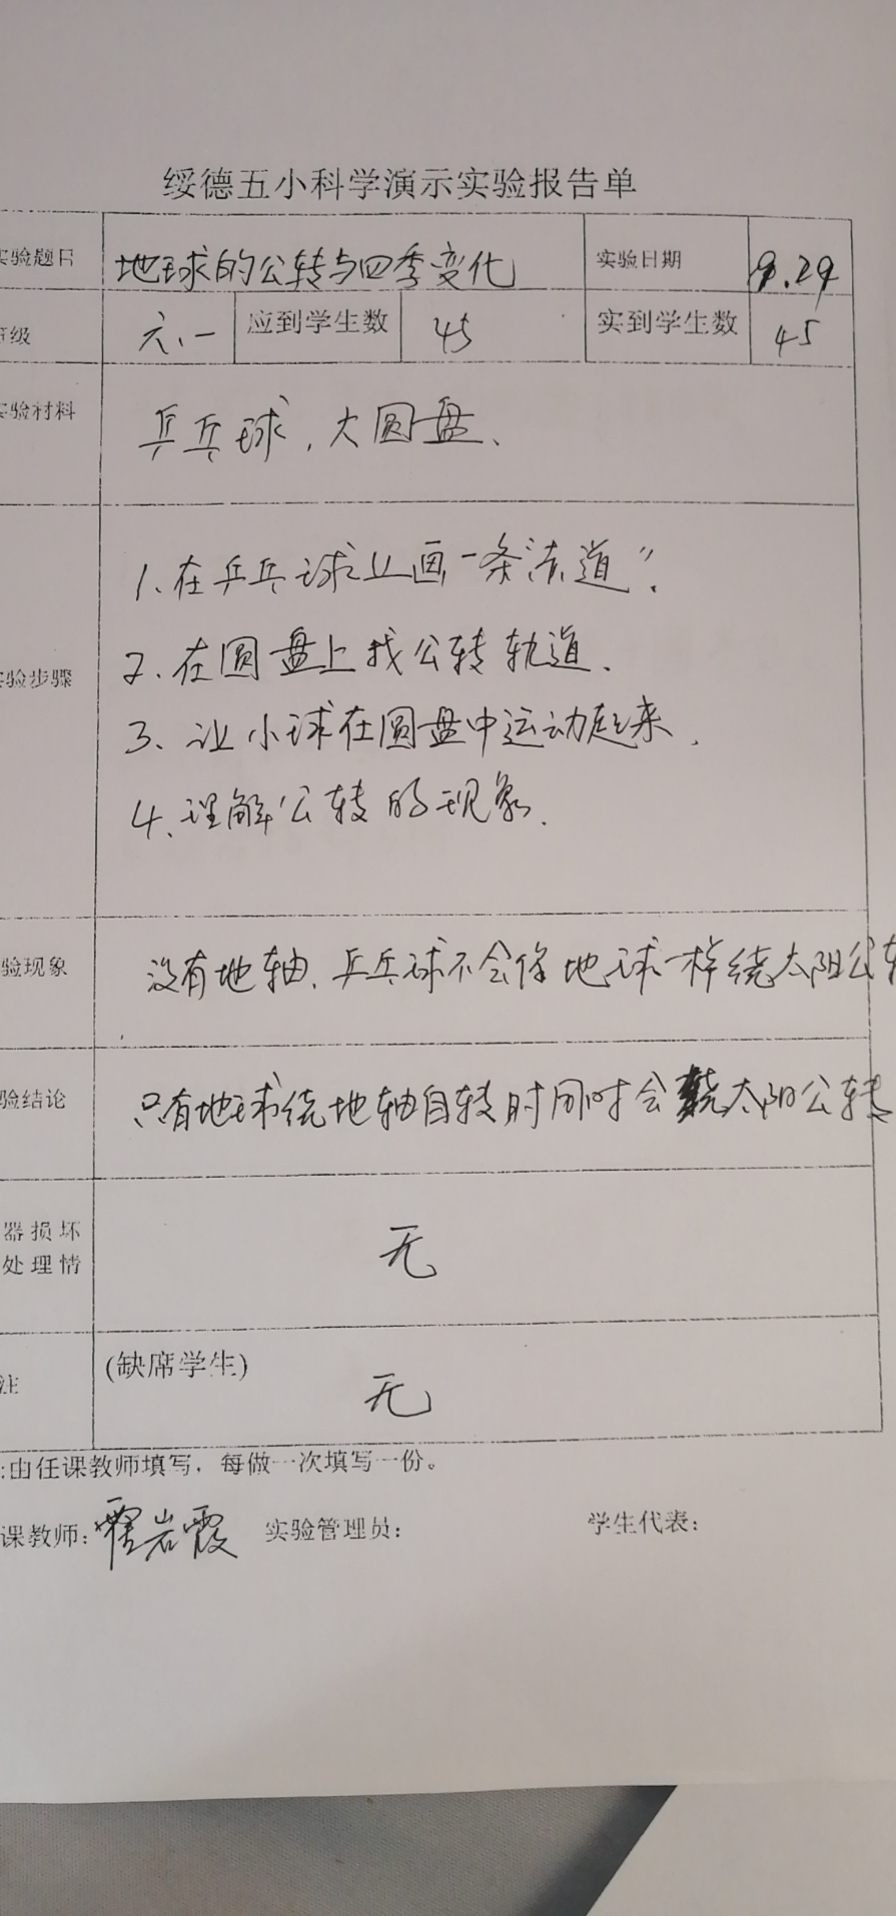 绥德五小科学演示实验报告单
实验题目 地球的公转与四季变化 实验日期 9.29
班级 六、一 应到学生数 45 实到学生数 45
实验材料 乒乓球，大圆盘、
1、在乒乓球上画一条"赤道"．
2、在圆盘上找公转轨道．
实验步骤
3、让小球在圆盘中运动起来．
4、理解公转的现象．
验现象 没有地轴．乒乓球不会像地球一样绕太阳公转
验结论 只有地球绕地轴自转时同时会绕太阳公转
器损坏
处理情 无
注 (缺席学生) 无
:由任课教师填写，每做一次填写一份。
课教师: 霍岩霞 实验管理员: 学生代表: